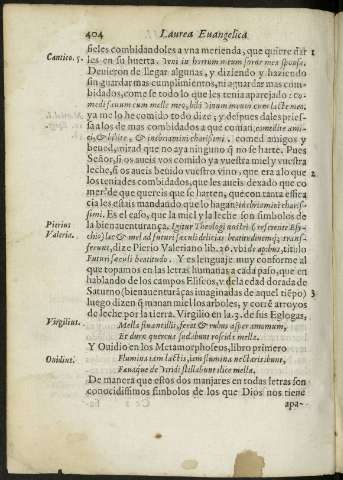 404 Laurea Euangelica
fieles combidandoles a vna merienda, que quiere dar 1
Cantico. 5. les en su huerta. Veni in hortum meum soror mea sponsa.
Deuieron de llegar algunas, y diziendo y haziendo
sin guardar mas cumplimientos, ni aguardar mas com-
bidados, come se todo lo que les tenia aparejado: co-
medi fauum cum melle meo, bibi vinum meum cum lacte meo,
ya me lo he comido todo dize, y despues dales pries-
sa a los de mas combidados a que coman, comedite ami-
ci, & bibite, & inebriamini charissimi. comed amigos y
beued, mirad que no aya ninguno q̃ no se harte. Pues
Señor, si os aueis vos comido ya vuestra miel y vuestra
leche, si os aueis beuido vuestro vino, que era alo que 2
los teniades combidados, que les aueis dexado que co
mer? de que quereis que se harten, que con tanta effica
cia les estais mandando que lo hagan inebriamini charis-
simi. Es el caso, que la miel y la leche son simbolos de
Pierius la bienauenturança, Igitur Theologi nostri (referente Esy-
Valeria. chio) lac & mel ad futuri sæculi delicias beatitudinemq; trans-
ferunt, dize Pierio Valeriano lib. 26. vbi de apibus, titulo
Futuri sæculi beatitudo. Y es lenguaje muy conforme al
que topamos en las letras humanas a cada paso, que en
hablando de los campos Eliseos, y de la edad dorada de
Saturno (bienauenturãças imaginadas de aquel tiẽpo) 3
luego dizen q̃ manan miel los arboles, y corrẽ arroyos
de leche por la tierra. Virgilio en la 3. de sus Eglogas,
Virgilius. Mella fluant illi, ferat & rubus asper amomum,
Et duræ quercus sudabunt roscida mella.
Y Ouidio en los Metamorphoseos, libro primero
Ouidius. Flumina iam lactis, iam flumina nectaris ibant,
Flauaque de viridi stillabant ilice mella.
De manera que estos dos manjares en todas letras son
conocidissimos simbolos de los que Dios nos tiene
apa-